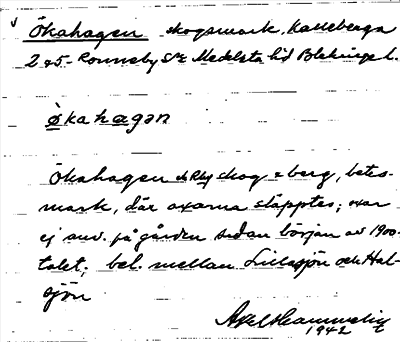 Ökahagen skogsmark, Kalleberga
2 & 5 - Ronneby Sn Medelsta hd Blekinge l.
økahagan
Ökahagen skog o berg, betes-
mark, där oxarna släpptes; oxar
ej anv. på gården sedan början av 1900-
talet; bel. mellan Lillasjön och Hal-
sjön
Axel
1942